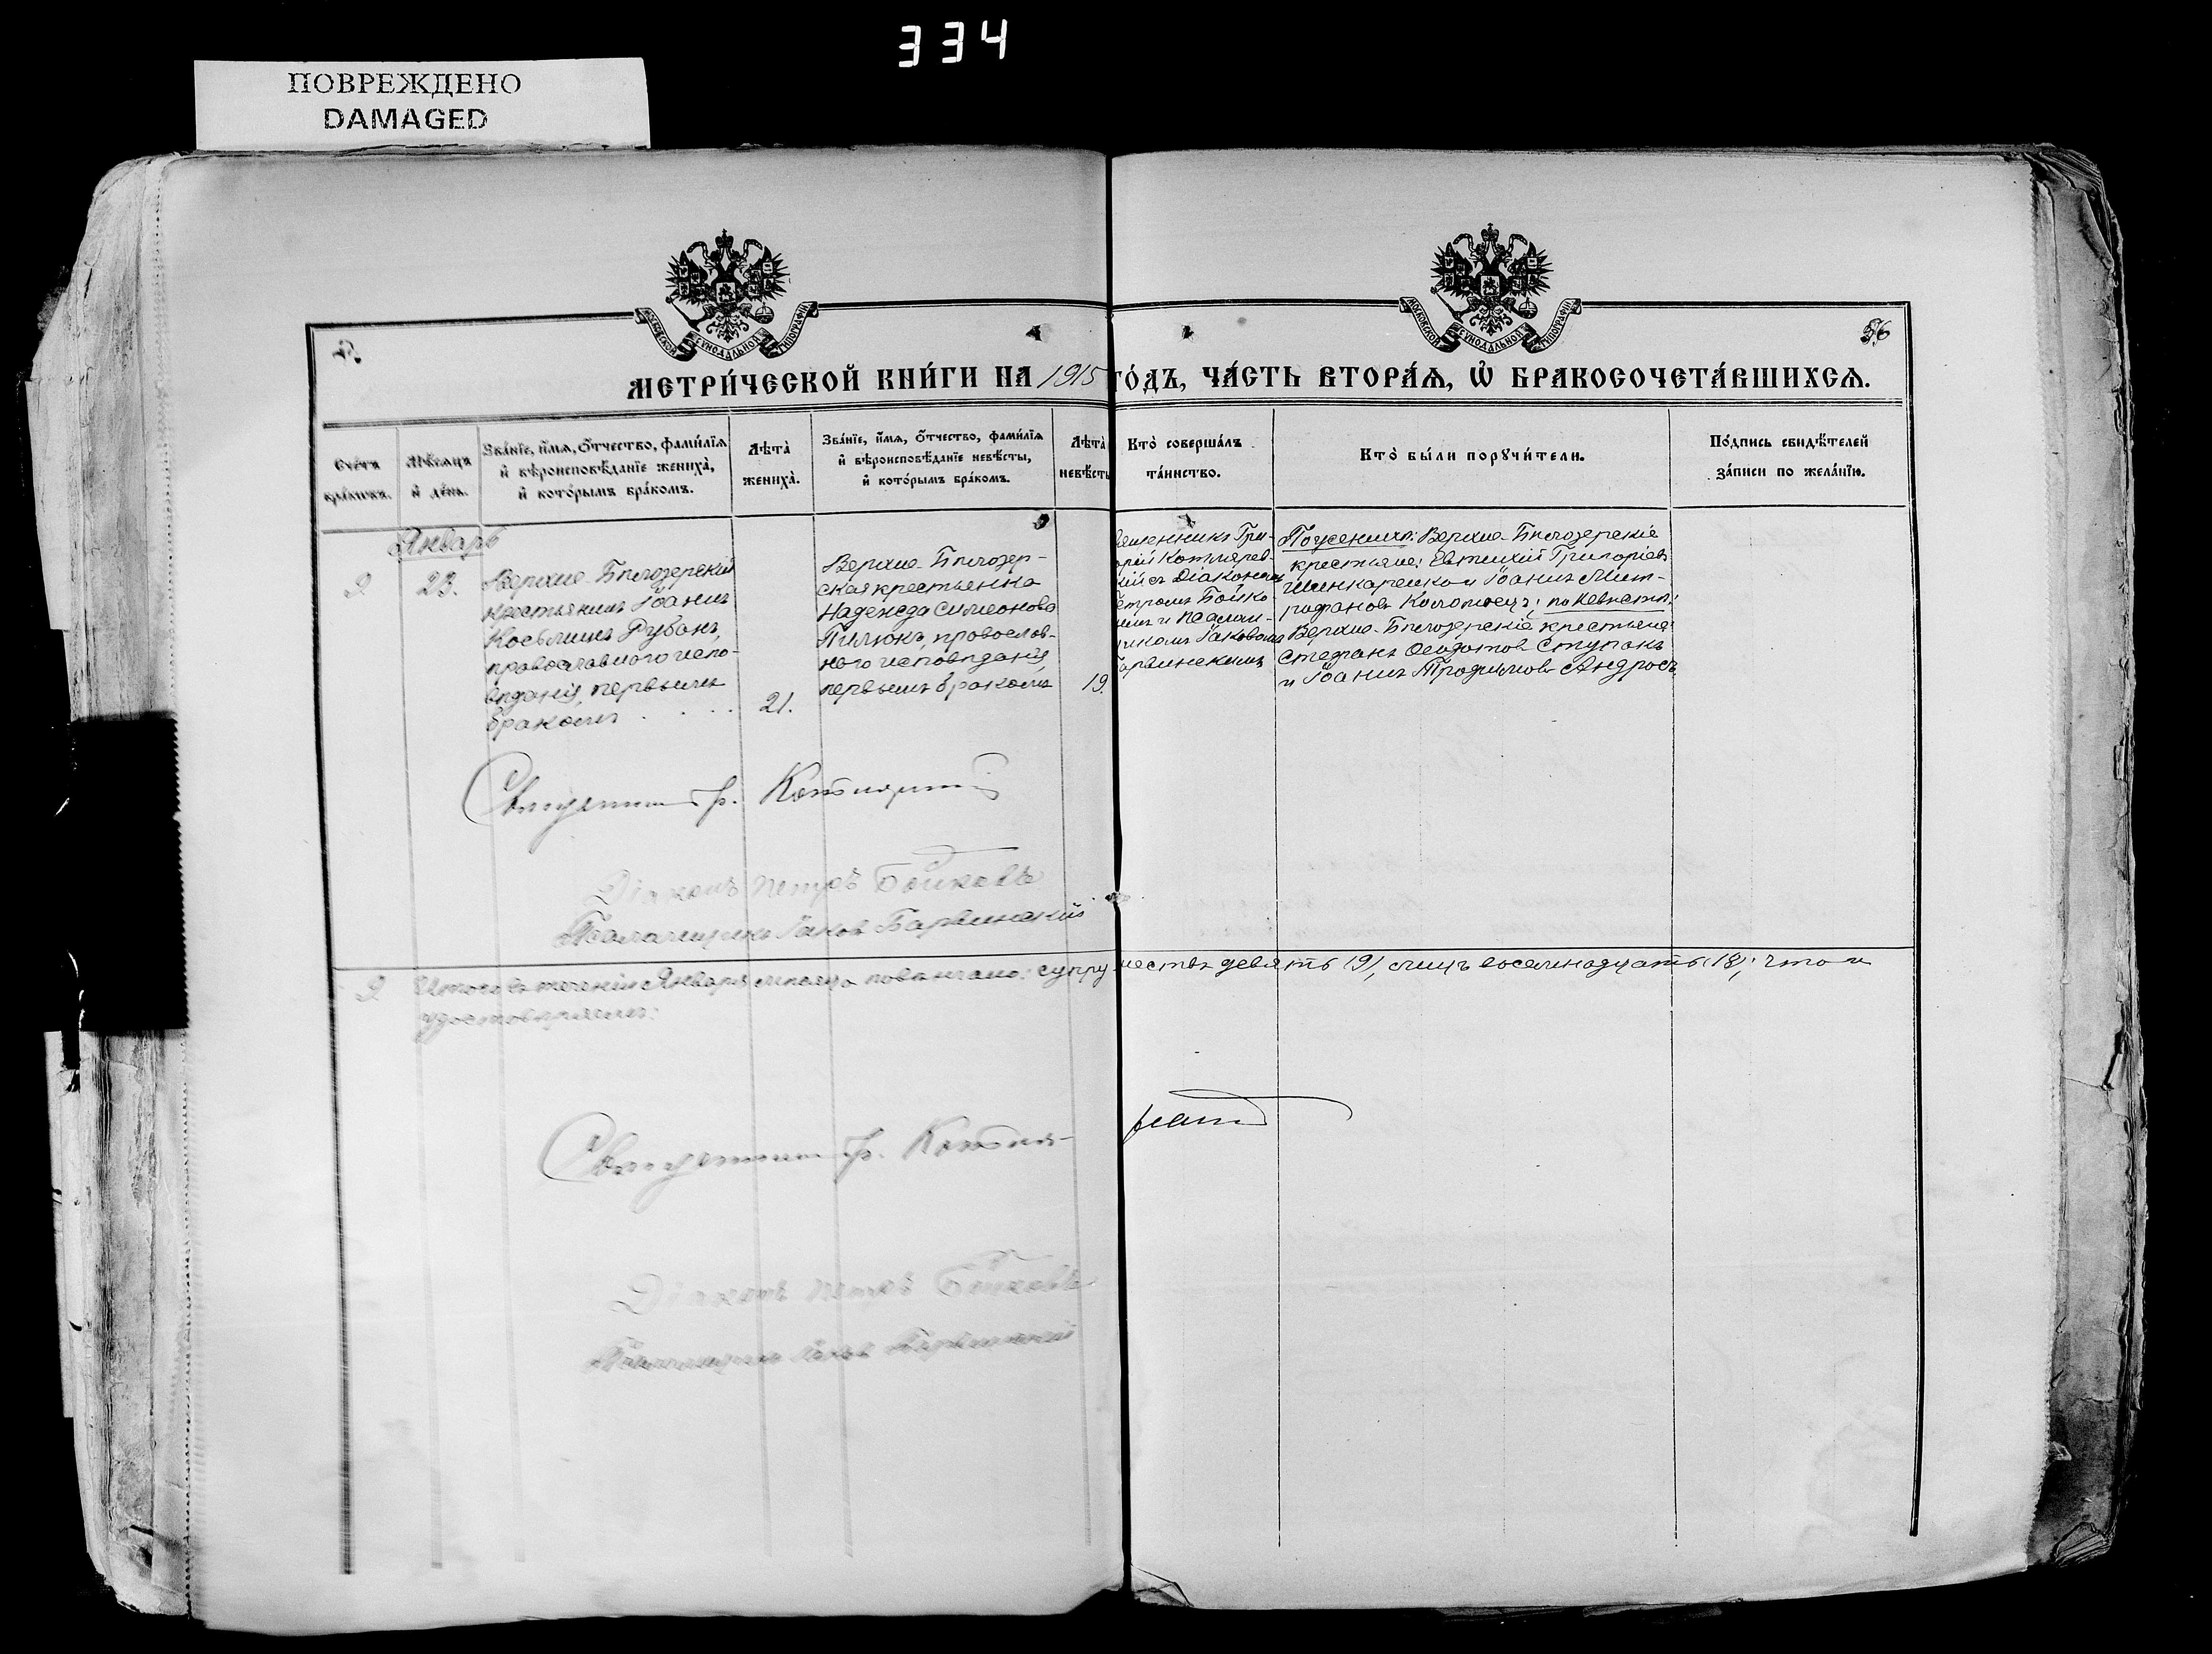 334
ПОВРЕЖДЕНО
DAMAGED
56
МЕТРИ́ЧЕСКОЙ КНИ́ГИ НА 1915 ГО́ДЪ, ЧА́СТЬ ВТОРА́Ѧ, Ѽ БРАКОСОЧЕТА́ВШИХСѦ.
Сче́тъ
бра́ковъ.
Мѣ́сѧцъ
и҆ де́нь.
Зва́нїе, и҆́мѧ, ѻ҆́тчество, фами́лїѧ
и҆ вѣроисповѣ́данїе жениха̀,
и҆ кото́рымъ бра́комъ.
Лѣта̀
жениха̀.
Зва́нїе, и҆́мѧ, ѻ҆́тчество, фами́лїѧ
и҆ вѣроисповѣ́данїе невѣ́сты,
и҆ кото́рымъ бра́комъ.
Лѣта̀
невѣ́сты
Кто̀ соверша́лъ
та́инство.
Кто̀ бы́ли порꙋчи́тели.
По́дпись свидѣ́телей
за́писи по жела́нїю.
Январь
9.
23.
Верхне-Бѣлозерскій
крестьянинъ Іоаннъ
Косьминъ Рубанъ,
православного испо-
вѣданія, первымъ
бракомъ
21.
Верхне-Бѣлозер-
ская крестьянка
Надежда Симеонова
Пилюкъ, православ-
ного исповѣданія,
первымъ бракомъ
19.
вященникъ Гри-
орій Котляров-
кій съ Діакономъ
етромъ Бойко-
ымъ и Псалом-
щикомъ Іаковомъ
арвинскимъ
По женихѣ: Верхне-Бѣлозерскіе
крестьяне: Евтихій Григоріевъ
Шинкаренко и Іоаннъ Мит-
рофановъ Коломоецъ; по невѣстѣ:
Верхне-Бѣлозерскіе крестьяне
Стефанъ Ѳеодотовъ Ступакъ
и Іоаннъ Трофимовъ Андросъ
Священникъ Гр.
Діаконъ Петръ Бойковъ
Псаломщикъ Іаковъ Барвинскій
9. Итого въ теченіи Января мѣсяца повѣнчано: супружествъ девять (9), лицъ восемнадцать (18); что и
удостовѣряемъ:
Священникъ Гр.
Діаконъ Петръ Бойковъ
Псаломщикъ Іаковъ Барвинскій